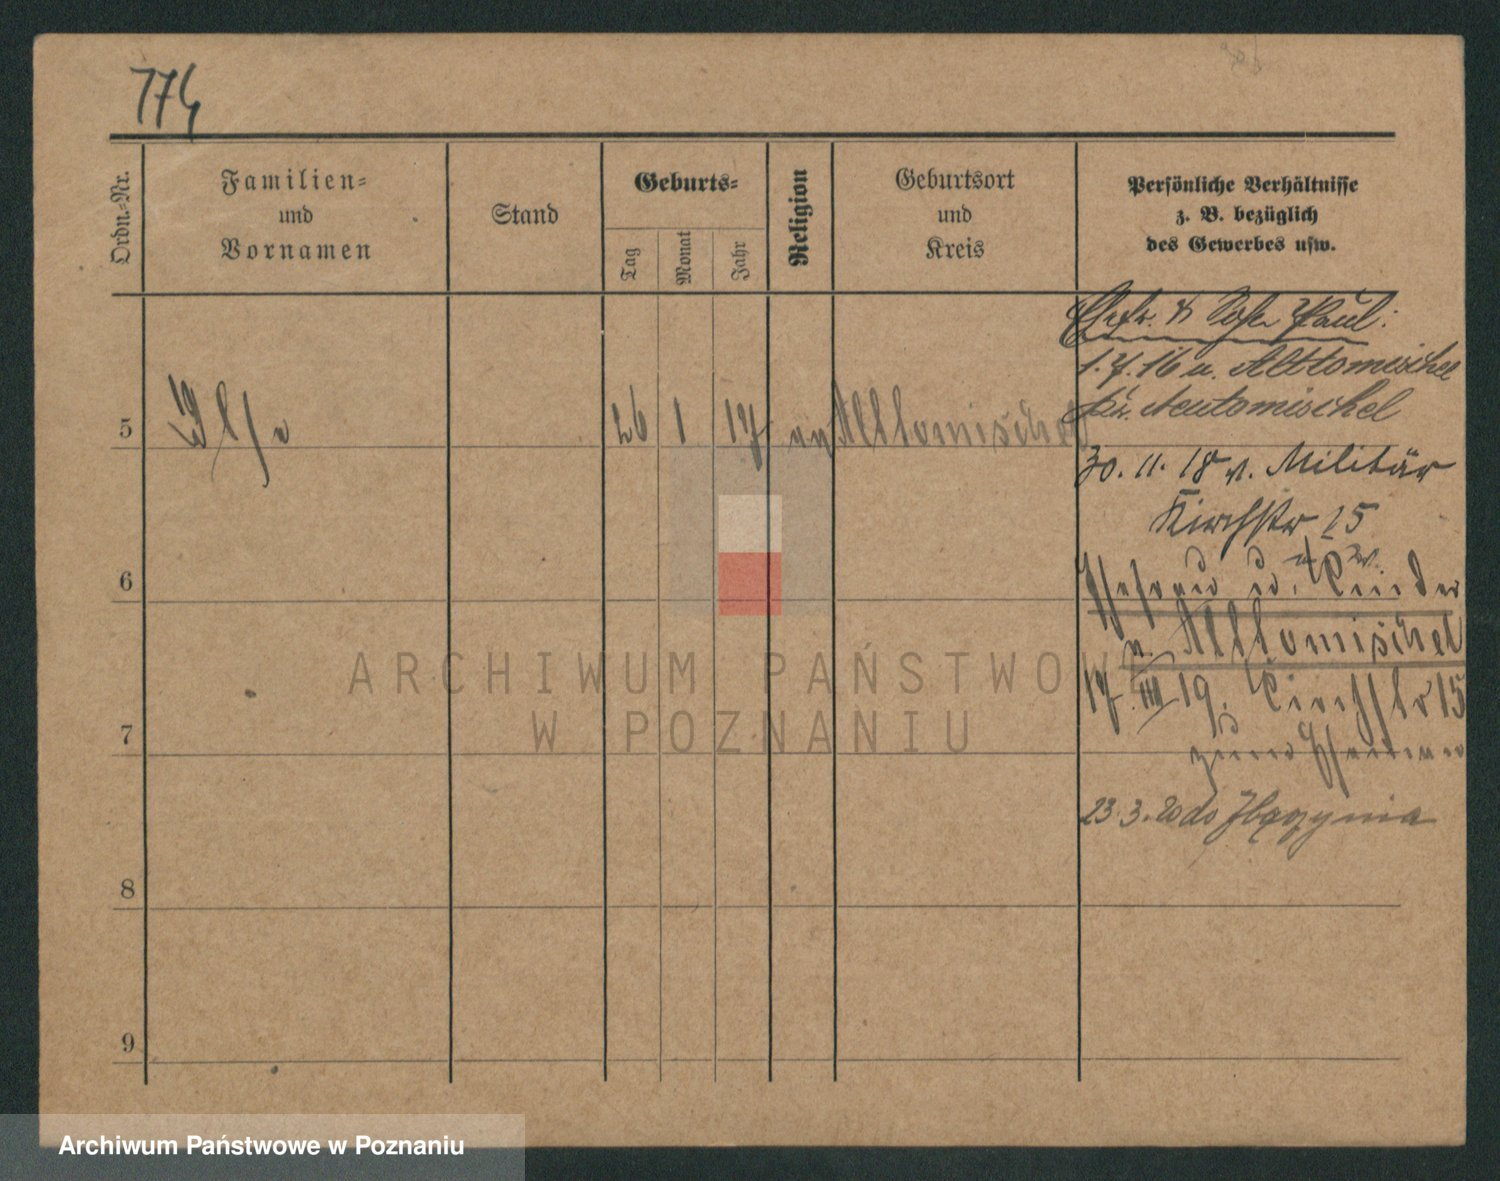 774
Ordn.-Nr.
Familien-
und
Vornamen
Stand
Geburts-
Tag
Monat
Jahr
Religion
Geburtsort
und
Kreis
Persönliche Verhältnisse
z. B. bezüglich
des Gewerbes usw.
Ehefr. & Sohn Paul:
1.7.16 n. Alttomischel
Kr. Neutomischel
5 Else 26 1 17 ev Alttomischel
30. 11. 18 v. Militär
Kirchstr 15
6
Ehefrau u. Kinder
n. Alttomischel
17. III 19. Kirchstr 15
7
zum Ehemann
23.3.20 do
8
9
ARCHIWUM PAŃSTWOWE
W POZNANIU
Archiwum Państwowe w Poznaniu